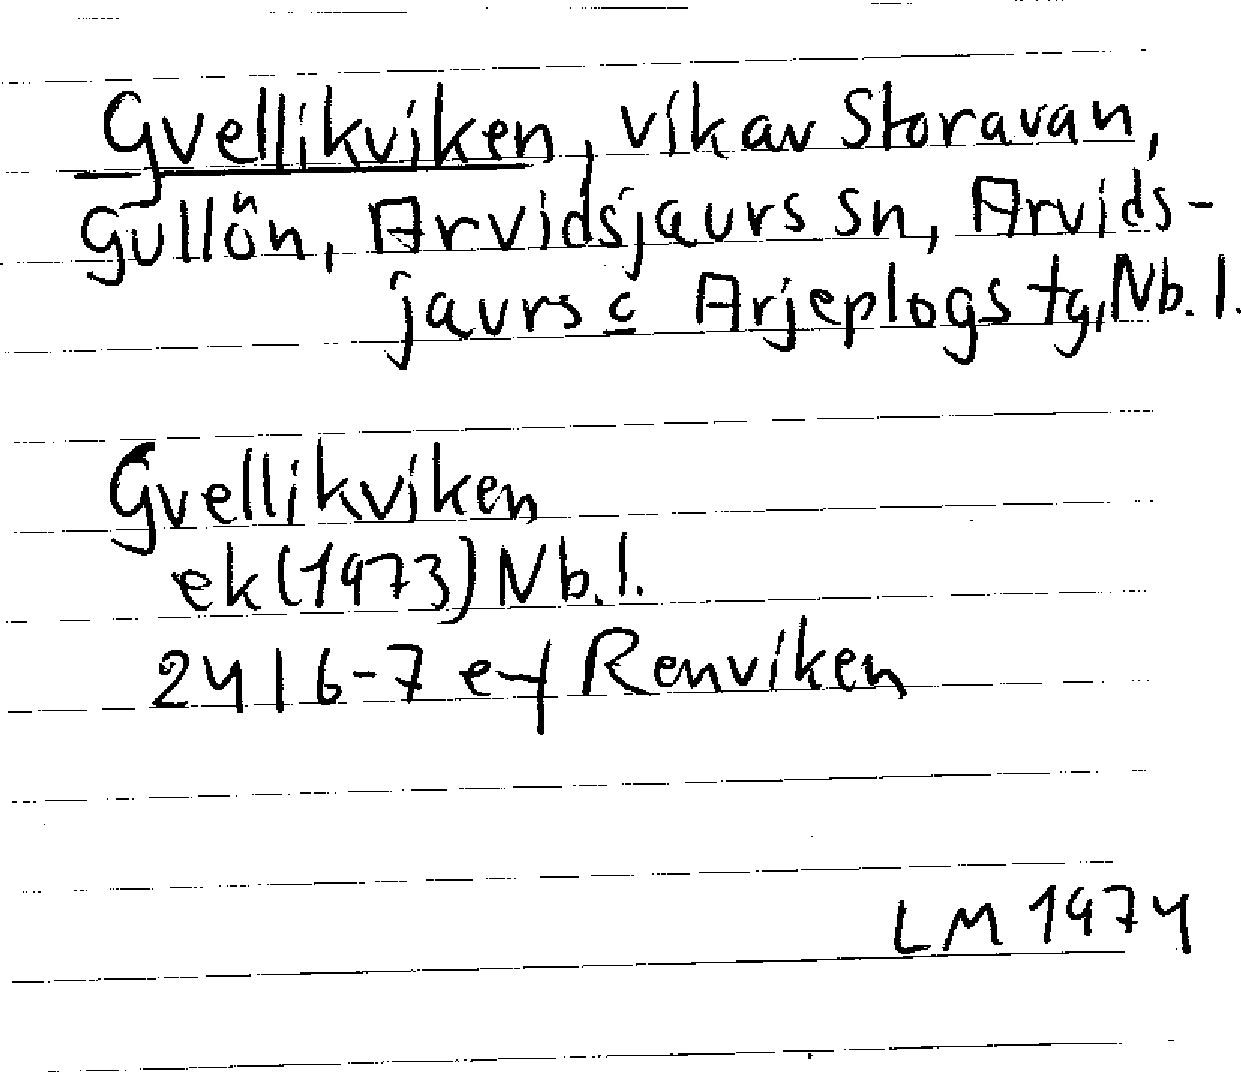 Gvellikviken, vik av Storavan,
Gullön, Arvidsjaurs sn, Arvids-
jaurs o Arjeplogs tg, Nb. l.
Gvellikviken
ek (1973) Nb. l.
24 I 6-7 e-f Renviken
LM 1974